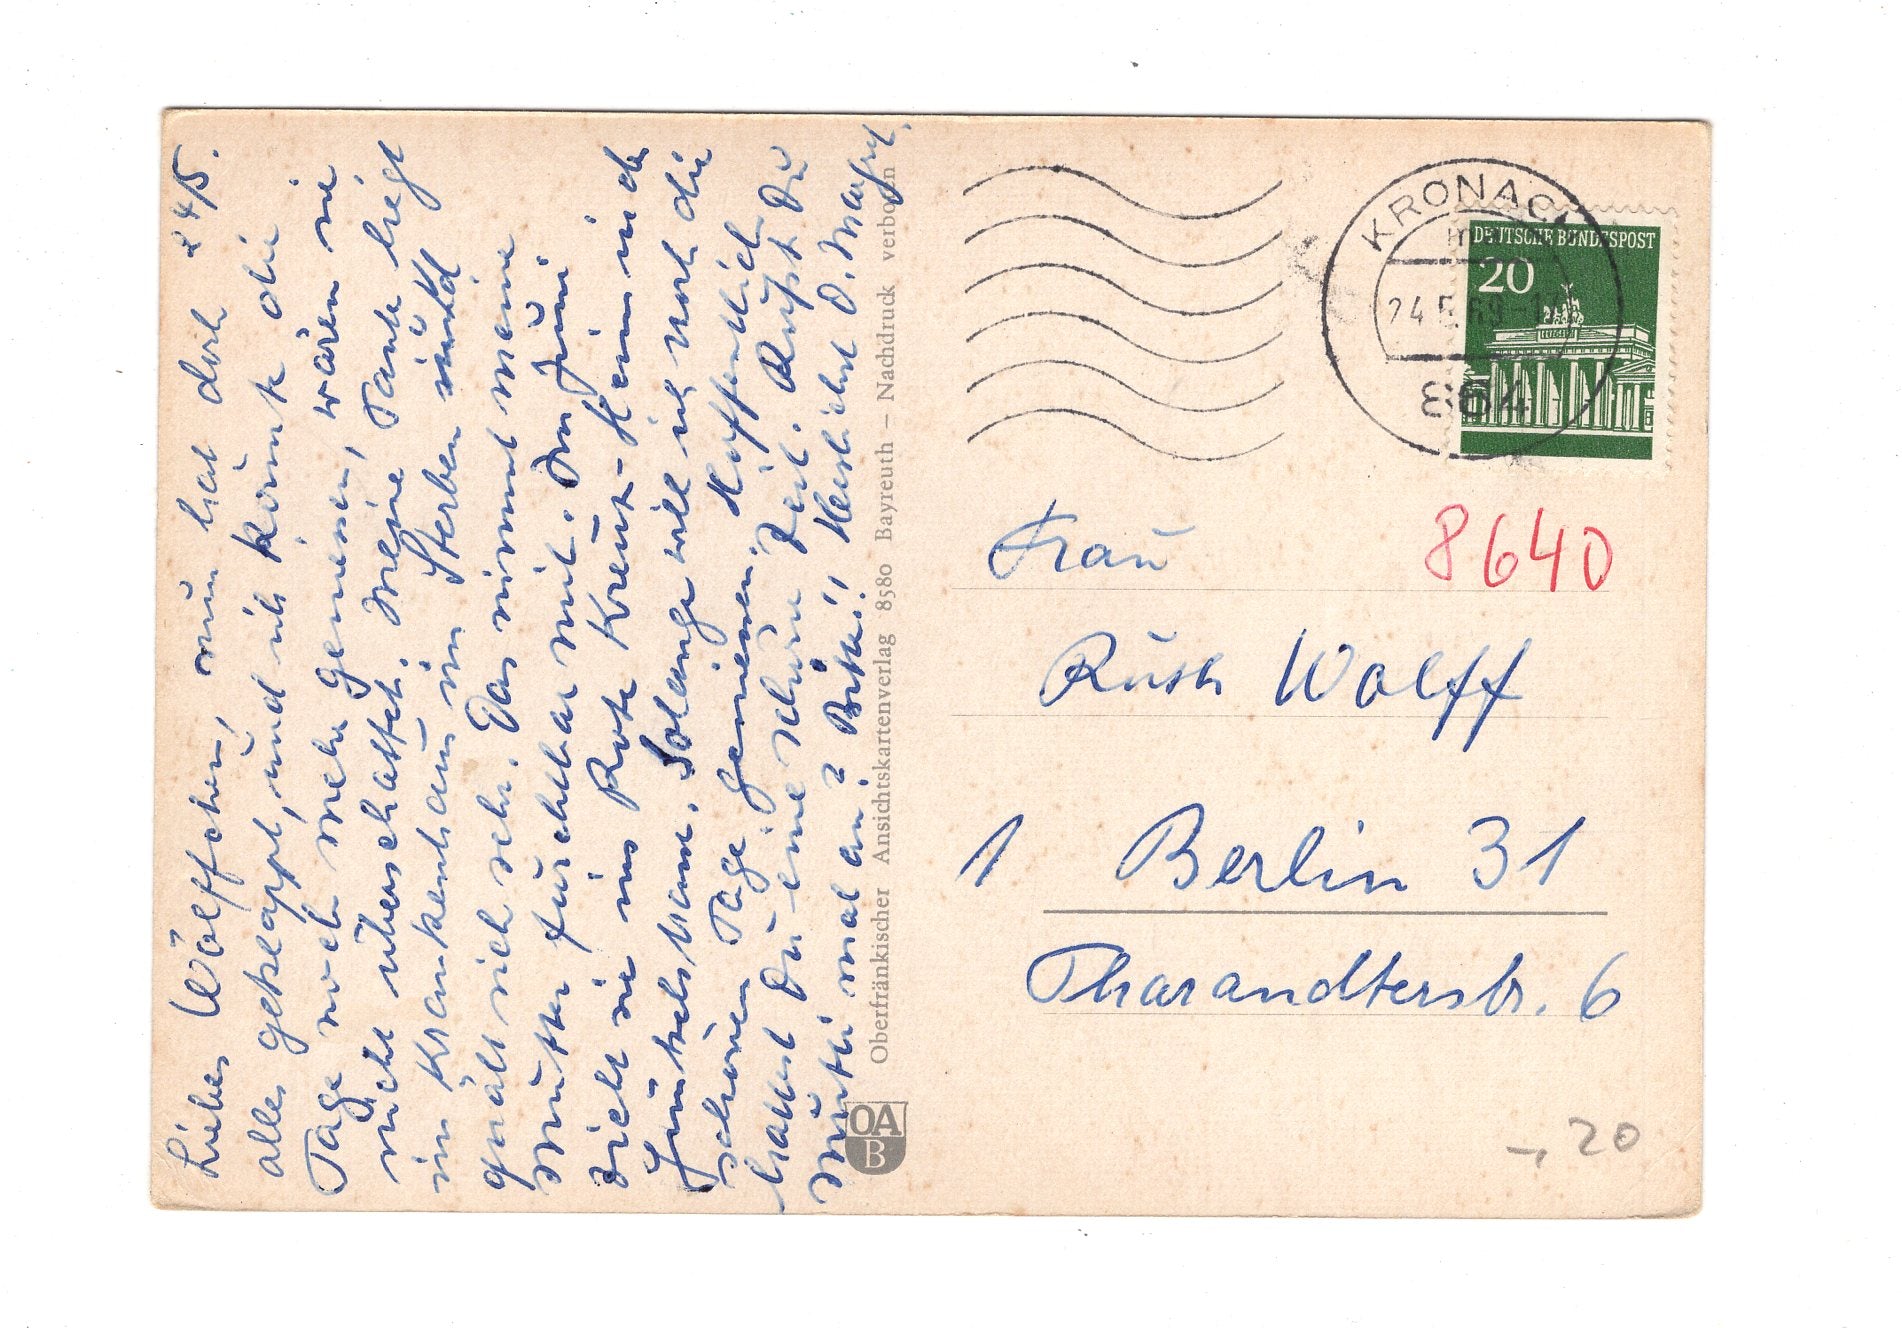 24/5.
Liebes Wölffchen, nun hat doch
alles geklappt, und ich konnte die
Tage noch mehr geniessen, wären sie
nicht überschattet. Meine Tante liegt
im Krankenhaus im Sterben und
quält sich sehr. Das nimmt meine
Mutter furchtbar mit. Im Juni
zieht sie ins Rote Kreuz-Heim in der
Solange will ich noch die
schönen Tage geniessen. Hoffentlich
hattest Du eine schöne Zeit. Rufst Du
Mutti mal an? Bitte!! Herzlichst D.
Oberfränkischer Ansichtskartenverlag 8580 Bayreuth – Nachdruck verboten
OA
B
KRONACH
24.5.69-1
864
DEUTSCHE BUNDESPOST
20
8640
Frau
Ruth Wolff
1 Berlin 31
Tharandterstr. 6
-,20